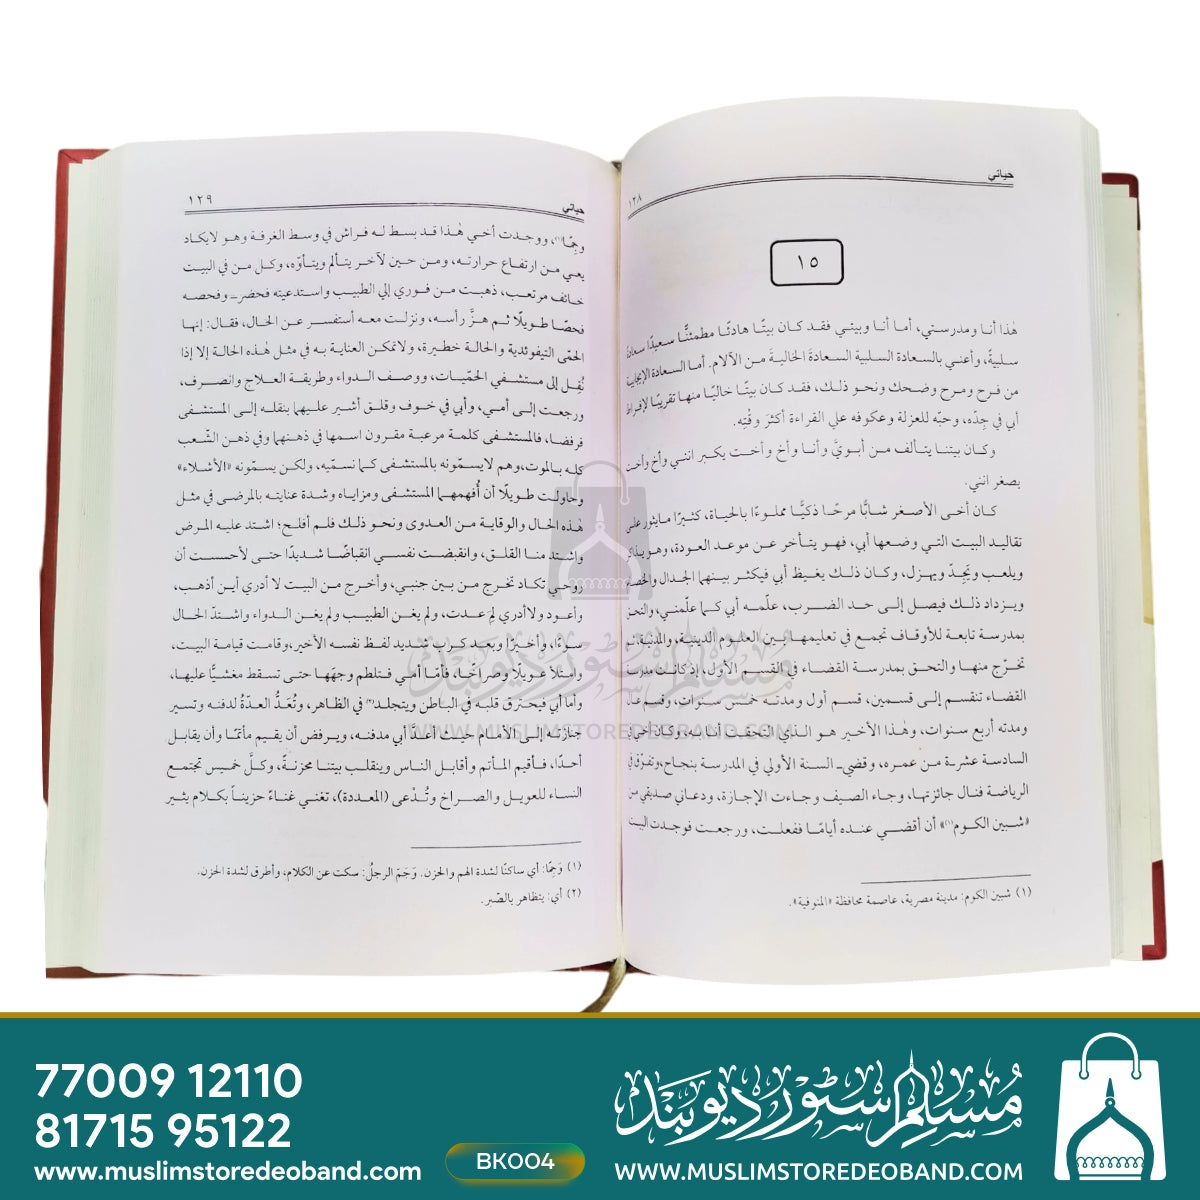 حياتي
١٢٨
١٥
هٰذا أنا ومدرستي، أما أنا وبيتي فقد كان بيتًا هادئًا مطمئنًّا سعيدًا سعادة
سلبيةً، وأعني بالسعادة السلبية السعادةَ الخاليةَ من الآلام. أما السعادة الإيجابية
من فرح ومرح وضحك ونحو ذلك، فقد كان بيتًا خاليًا منها تقريبًا لإفراط
أبي في جِدّه، وحبّه للعزلة وعكوفه علي القراءة أكثرَ وقْتِه.
وكان بيتنا يتألف من أبويَّ وأنا وأخ وأخت يكبر انني وأخ وأخت
يصغر انني.
كان أخى الأصغر شابًّا مرحًا ذكيًّا مملوءًا بالحياة، كثيرًا ما يثور على
تقاليد البيت التي وضعها أبي، فهو يتأخر عن موعد العودة، وهو يذاكر
ويلعب ويَجِدّ ويهزل، وكان ذلك يغيظ أبي فيكثر بينهما الجدال والخصام
ويزداد ذلك فيصل إلى حد الضرب، علّمه أبي كما علّمني، والتحق
بمدرسة تابعة للأوقاف تجمع في تعليمها بين العلوم الدينية، والمدنية، ثم
تخرّج منها والتحق بمدرسة القضاء في القسم الأول، إذ كانت مدرسة
القضاء تنقسم إلى قسمين، قسم أول ومدته خمس سنوات، وقسم عال
ومدته أربع سنوات، وهٰذا الأخير هو الذي التحقت أنا به، وكان أخي في
السادسة عشرة من عمره، وقضي- السنة الأولي في المدرسة بنجاح، وتفوّق في
الرياضة فنال جائزتها، وجاء الصيف وجاءت الإجازة، ودعاني صديقي من
«شبين الكوم(١)» أن أقضي عنده أيامًا ففعلت، ورجعت فوجدت البيت
(١) شبين الكوم: مدينة مصرية، عاصمة محافظة «المنوفية».
حياتي
١٢٩
وجِمًا(١)، ووجدت أخي هٰذا قد بسط له فراش في وسط الغرفة وهو لا يكاد
يعي من ارتفاع حرارته، ومن حين لآخر يتألم ويتأوّه، وكل من في البيت
خائف مرتعب، ذهبت من فوري إلي الطبيب واستدعيته فحضر- وفحصه
فحصًا طويلًا ثم هزَّ رأسه، ونزلت معه أستفسر عن الحال، فقال: إنها
الحمّى التيفوئدية والحالة خطيرة، ولا تمكن العناية به في مثل هٰذه الحالة إلا إذا
نُقِل إلى مستشفي الحمّيات، ووصف الدواء وطريقة العلاج وانصرف،
ورجعت إلى أمي، وأبي في خوف وقلق أشير عليهما بنقله إلى المستشفى
فرفضا، فالمستشفى كلمة مرعبة مقرون اسمها في ذهنهما وفي ذهن الشّعب
كله بالموت، وهم لا يسمّونه بالمستشفى كما نسمّيه، ولكن يسمّونه «الأشلاء»
وحاولت طويلًا أن أُفهمهما المستشفى ومزاياه وشدة عنايته بالمرضى في مثل
هٰذه الحال والوقاية من العدوى ونحو ذلك فلم أفلح؛ اشتد عليه المرض
واشتد منا القلق، وانقبضت نفسي انقباضًا شديدًا حتى لأحسست أن
روحي تكاد تخرج من بين جنبي، وأخرج من البيت لا أدري أين أذهب،
وأعود ولا أدري لِمَ عدت، ولم يغن الطبيب ولم يغن الدواء واشتدّ الحال
سوءًا، وأخيرًا وبعد كرب شديد لفظ نفسه الأخير، وقامت قيامة البيت،
وامتلأ عويلًا وصراخًا، فأمّا أمي فتلطم وجهَها حتى تسقط مغشيًّا عليها،
وأما أبي فيحترق قلبه في الباطن ويتجلد(٢) في الظاهر، وتُعَدُّ العدّة لدفنه وتسير
جنازته إلى الإمام حيث أعدّ أبي مدفنه، ويرفض أن يقيم مأتمًا وأن يقابل
أحدًا، فأقيم المأتم وأقابل الناس وينقلب بيتنا محزنةً، وكلَّ خميس تجتمع
النساء للعويل والصراخ وتُدْعى (المعددة)، تغني غناءً حزيناً بكلام يثير
(١) وَجِمًا: أي ساكتًا لشدة الهم والحزن. وَجَمَ الرجلُ: سكت عن الكلام، وأطرق لشدة الحزن.
(٢) أي: يتظاهر بالصّبر.
مسلم سٹور دیوبند
WWW.MUSLIMSTOREDEOBAND.COM
77009 12110
81715 95122
www.muslimstoredeoband.com
BK004
مسلم سٹور دیوبند
WWW.MUSLIMSTOREDEOBAND.COM